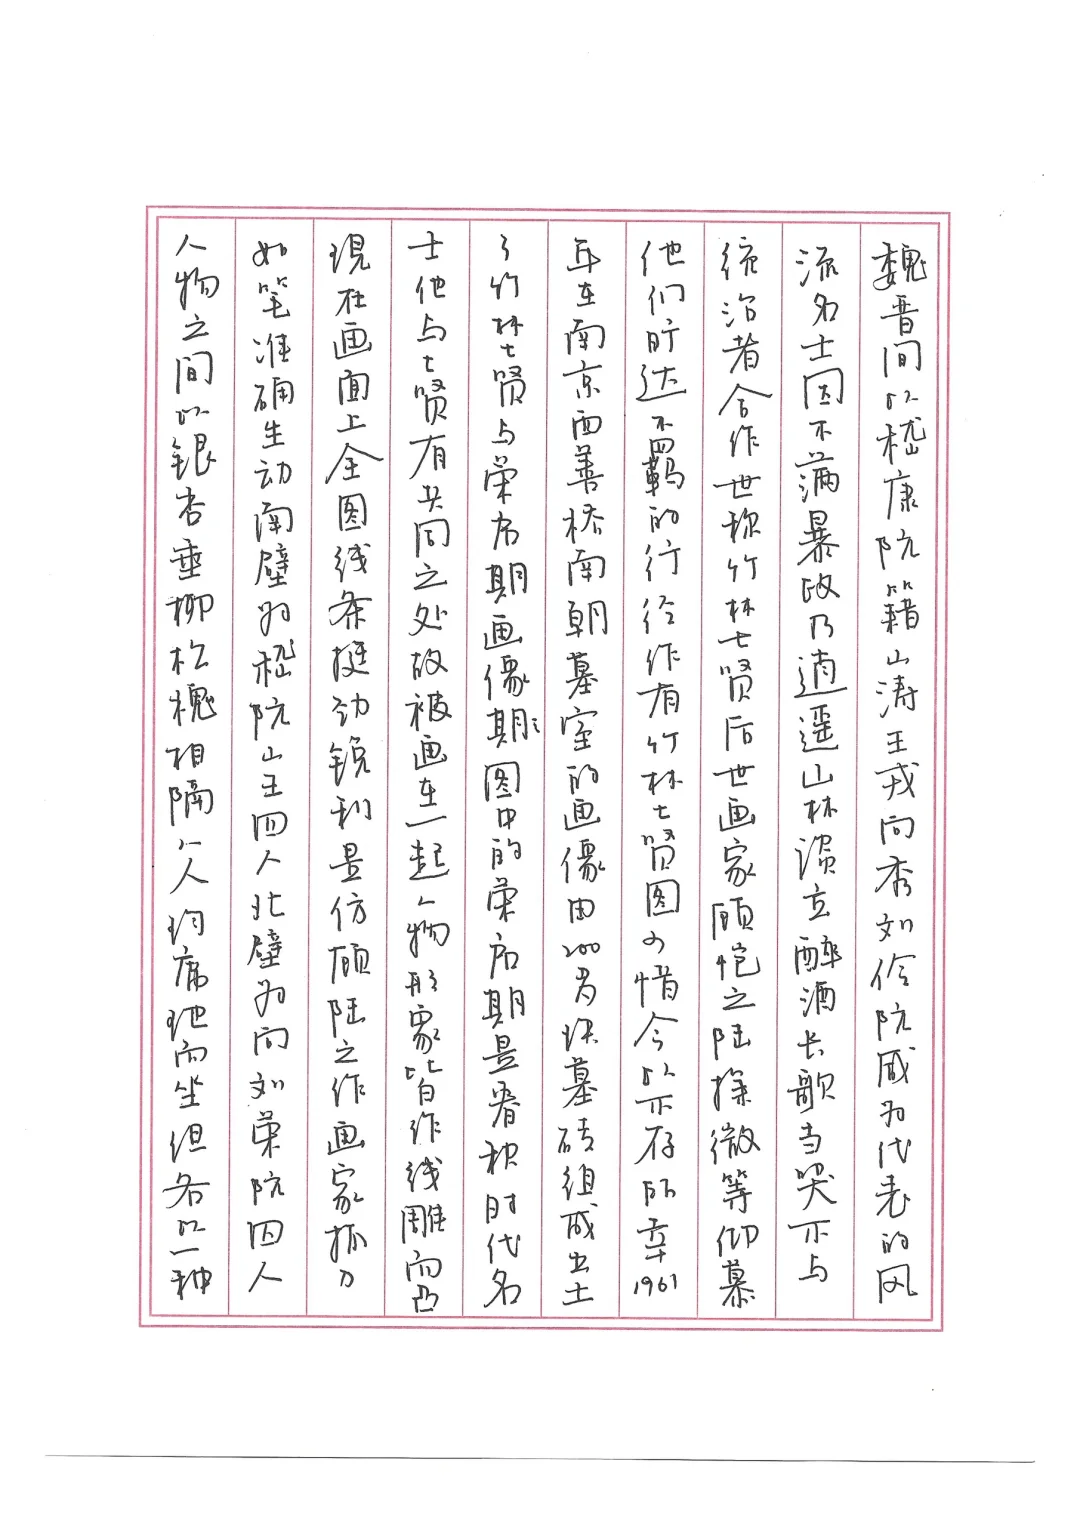 魏晋间以嵇康阮籍山涛王戎向秀刘伶阮咸为代表的风
流名士因不满暴政乃逍遥山林滨立酣酒长歌当哭不与
统治者合作世称竹林七贤后世画家顾恺之陆探微等仰慕
他们旷达不羁的行径作有竹林七贤图可惜今皆不存所幸1961
年在南京西善桥南朝墓室的画像由200多块墓砖组成出土
了竹林七贤与荣启期画像期:图中的荣启期是春秋时代名
士他与七贤有共同之处故被画在一起人物形象皆作线雕而凸
现在画面上全图线条挺劲锐利显仿顾陆之作画家抓刀
如笔准确生动南壁为嵇阮山王四人北壁为向刘荣阮四人
人物之间以银杏垂柳松槐相隔八人均席地而坐但各以一种